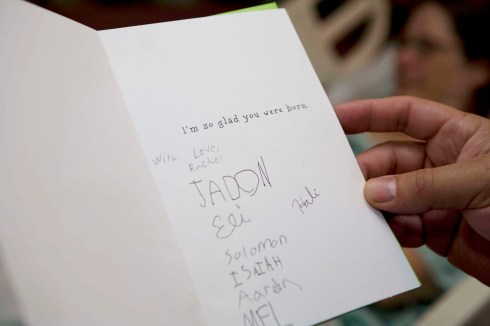 I'm so glad you were born.
With Love,
Rachel
JADON
Eli
Hali
Solomon
ISAIAH
Aaron
MEL